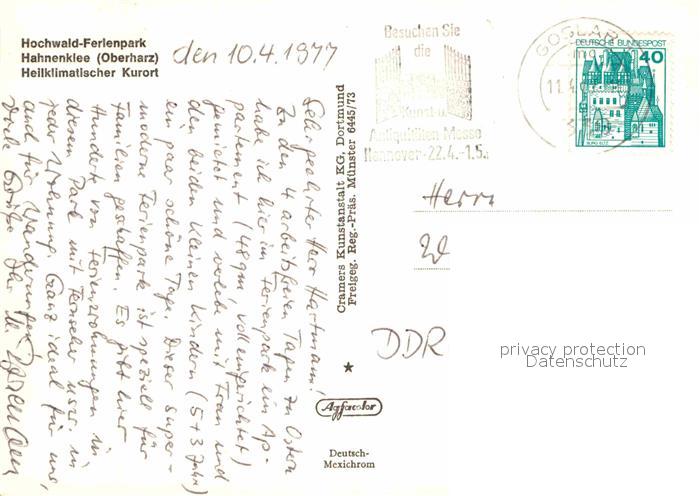 Hochwald-Ferienpark
Hahnenklee (Oberharz)
Heilklimatischer Kurort
den 10.4.1977
Sehr geehrter Herr Hartmann!
Zu den 4 arbeitsfreien Tagen zu Ostern
habe ich hier im Ferienpark ein Ap-
partement (48qm volleingerichtet)
gemietet und verlebe mit Frau und
den beiden kleinen Kindern (5+3 Jahre)
ein paar schöne Tage. Dieser super-
moderne Ferienpark ist speziell für
Familien geschaffen. Es gibt hier
Hunderte von Ferienwohnungen in
diesem Park mit Fernseher usw. in
jeder Wohnung. Ganz ideal für uns,
auch für Wanderungen.
Viele Grüße Ihr
Cramers Kunstanstalt KG, Dortmund
Freigeg. Reg.-Präs. Münster 6445/73
Agfacolor
Deutsch-
Mexichrom
Besuchen Sie
die
Kunst-u.
Antiquitäten Messe
Hannover-22.4.-1.5.
GOSLAR
11.4
DEUTSCHE BUNDESPOST
40
BURG ELTZ
Herrn
W
DDR
privacy protection
Datenschutz